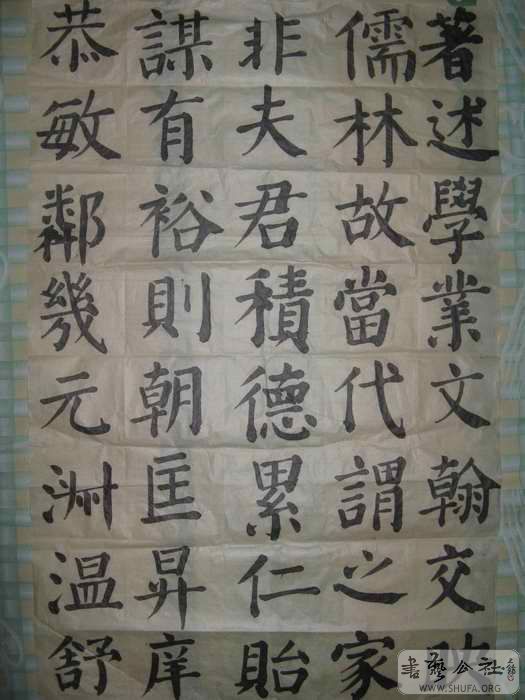 著述學業文翰交
儒林故當代謂之家
非夫君積德累仁貽
謀有裕則朝匡昇庠
恭敏鄰幾元淵温舒
書藝公社
WWW.SHUFA.ORG